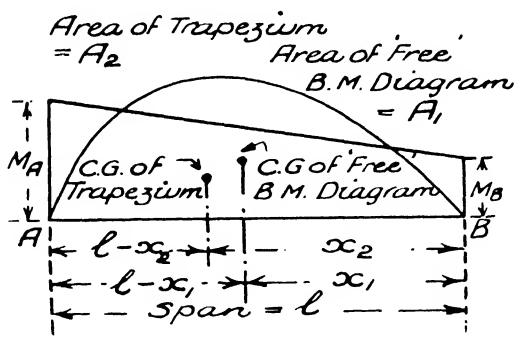 Area of Trapezium
= A₂
Area of 'Free'
B.M. Diagram
= A₁
M_A
C.G. of
Trapezium
C.G of 'Free'
B.M. Diagram
M_B
A
B
l-x₂
x₂
l-x₁
x₁
span = l